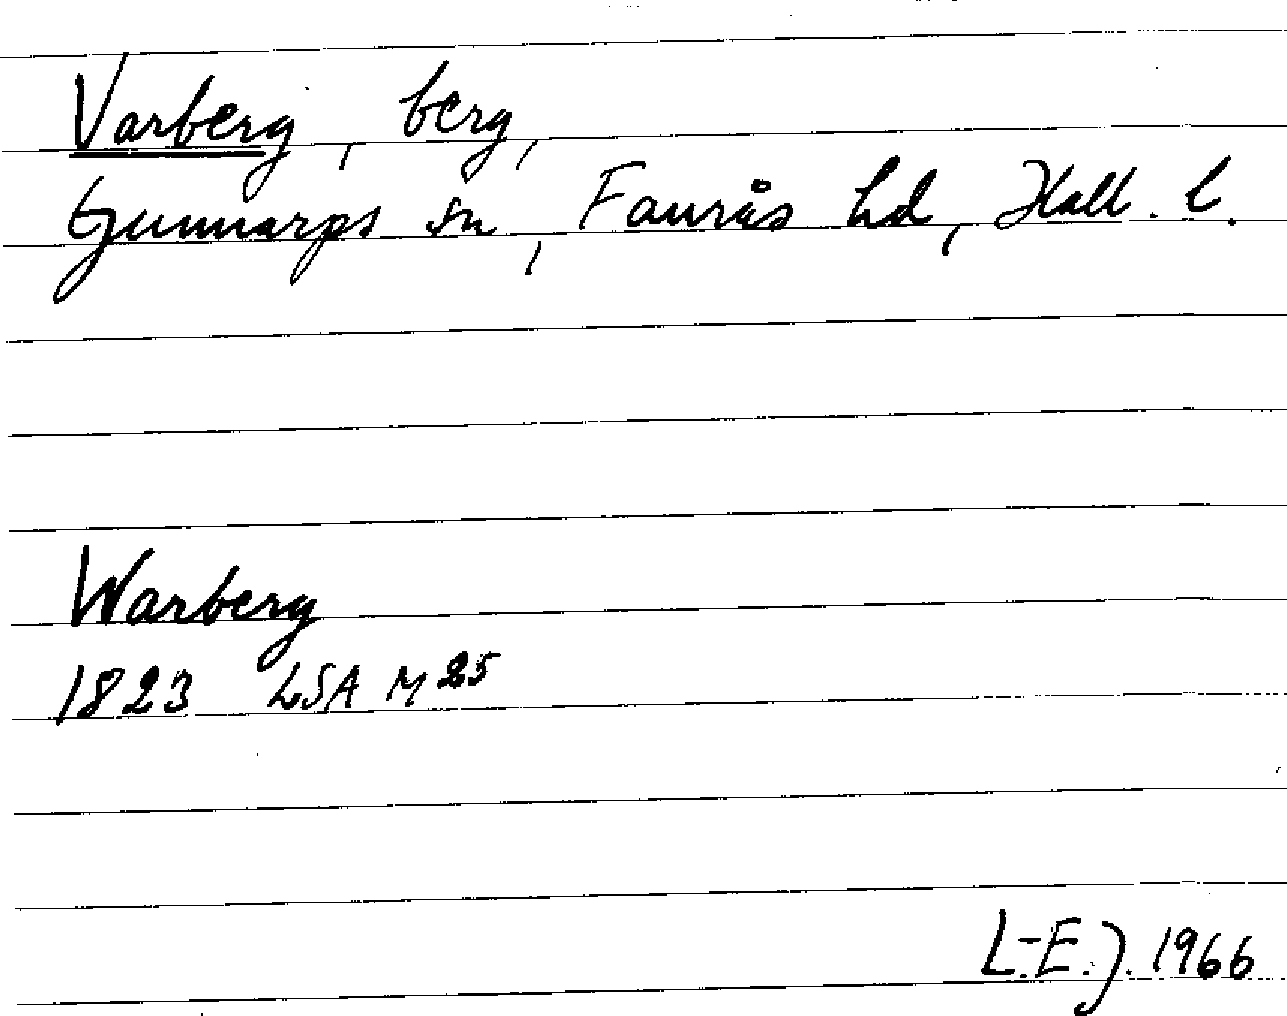 Varberg, berg,
Gunnarps sn, Faurås hd, Hall. l.
Warberg
1823 LSA M 25
L.-E. J. 1966